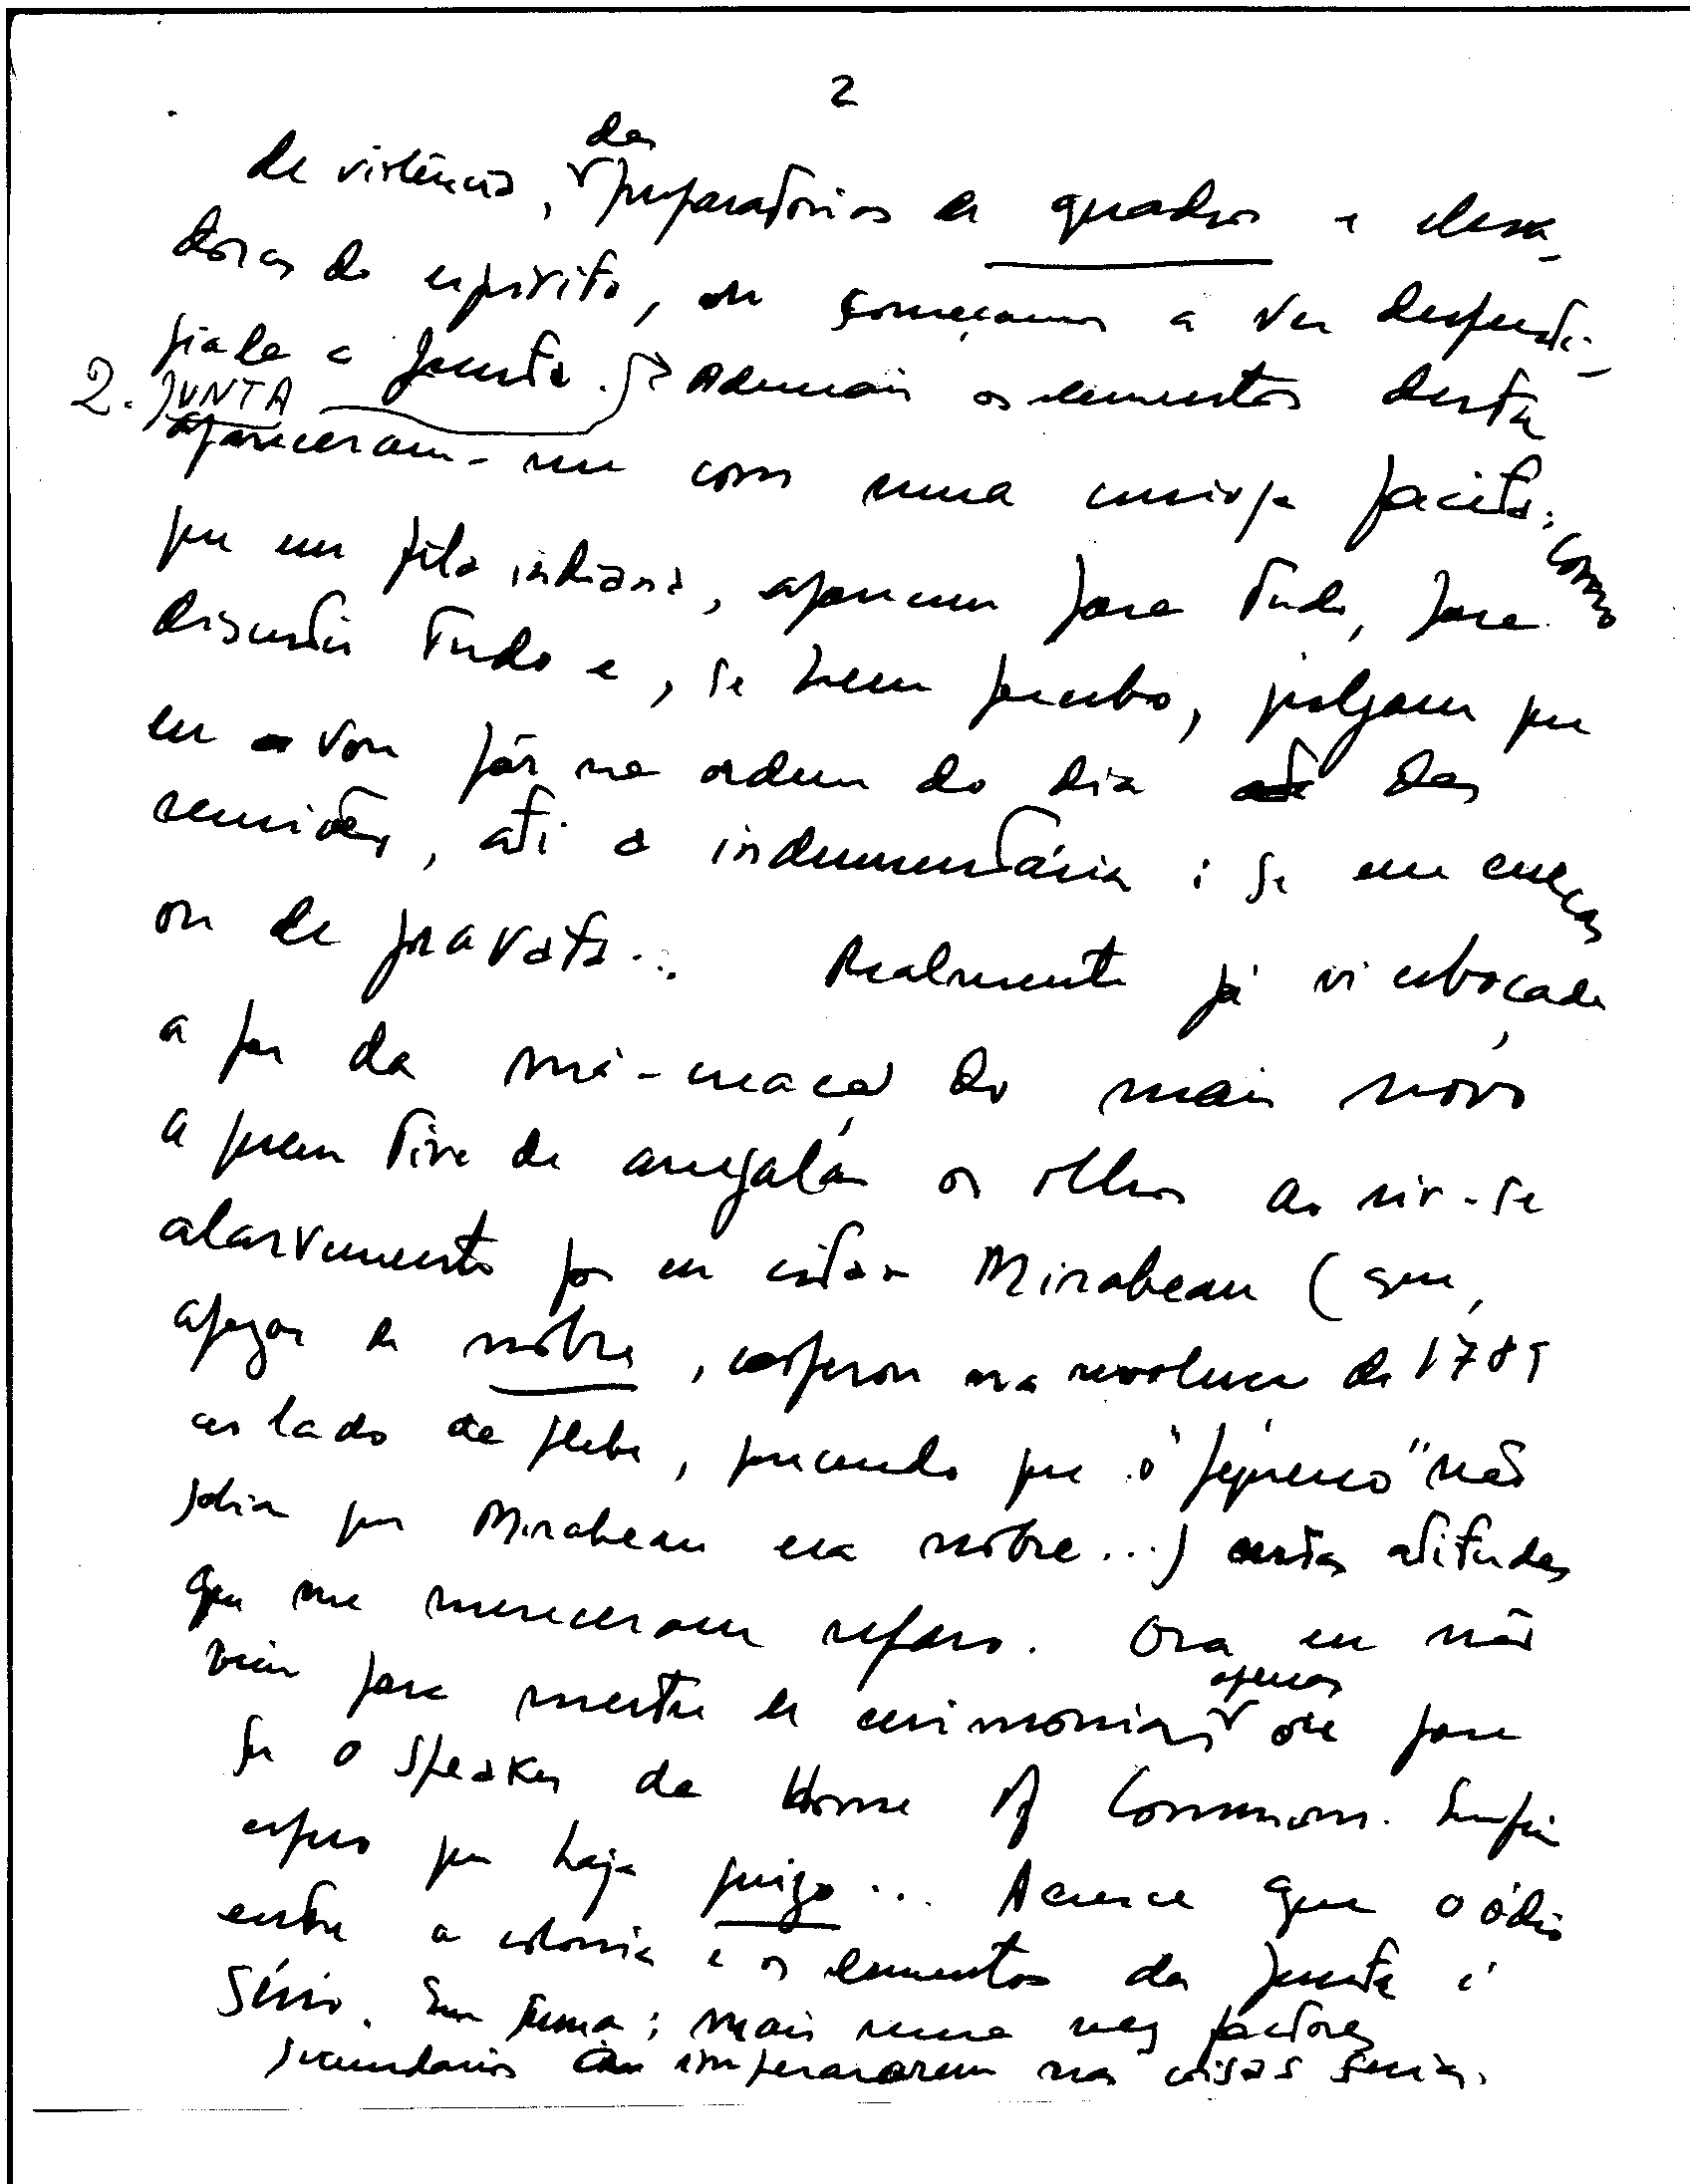 2
das
de violência, preparatórias de quadros e eleva-
doras do espírito, ou começamos a ver despresti-
giada a Junta. Ademais os elementos desta
2. JUNTA
apareceram-me com uma curiosa faceta: como
que em fila indiana, aparecem para tudo, para
discutir tudo e, se bem percebo, julgam que
eu vou pôr na ordem do dia das
reuniões, até a indumentária: se em cuecas
ou de gravata... Realmente já vi esboçada
a par da má-criação do mais novo
a quem tive de arregalar os olhos ao rir-se
alarvemente por eu citar Mirabeau (que,
apesar de nobre, cooperou na revolução de 1789
ao lado da plebe, parecendo que o "pequeno" não
sabia que Mirabeau era nobre...) certas atitudes
que me mereceram reparo. Ora eu não
apenas
vim para mestre de cerimónias ou para
ser o speaker da House of Commons. Enfim
espero que haja juízo... Acresce que o ódio
entre a colónia e os elementos da Junta é
sério. Em suma: mais uma vez factores
secundários a imperarem nas coisas sérias.